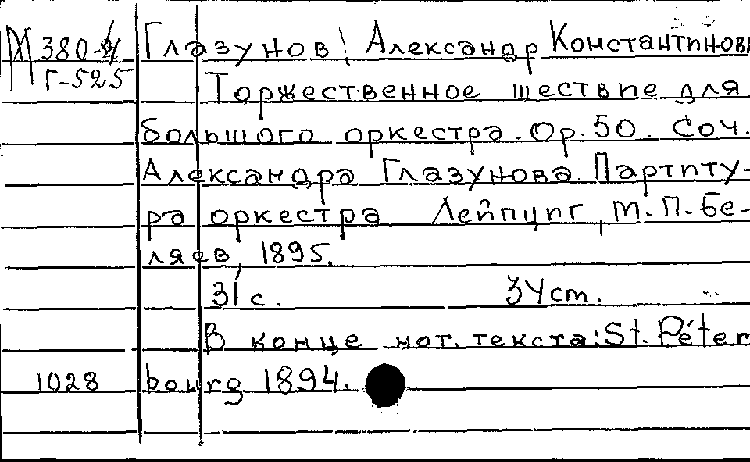 М 380-4 Глазунов, Александр Константинови
Г-525
Торжественное шествие для
большого оркестра. Ор. 50. Соч.
Александра Глазунова. Партиту-
ра оркестра Лейпциг, М.П. Бе-
ляев, 1895.
31 с. 34 cm.
В конце нот. текста: St. Péter
1028 bourg 1894.